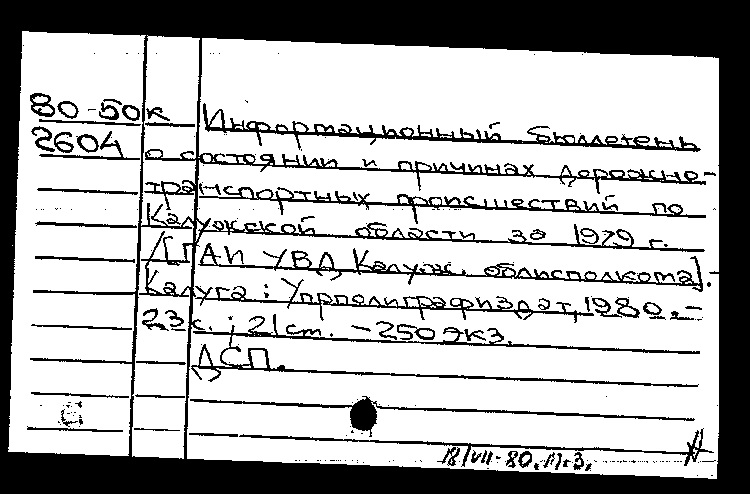 80-50к Информационный бюллетень
2604 о состоянии и причинах дорожно-
транспортных происшествий по
Калужской области за 1979 г.
/[ГАИ УВД Калуж. облисполкома].-
Калуга: Упрполиграфиздат, 1980.-
23 с.; 21 cm. - 250 экз.
ДСП.
18/VII-80.